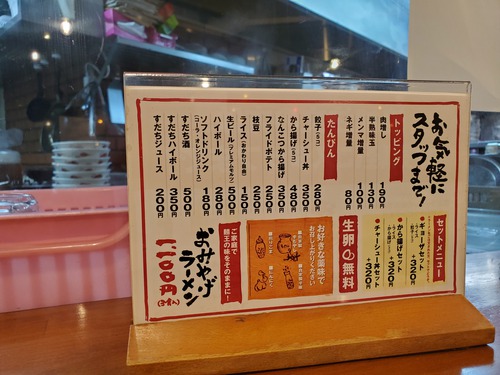 お気軽に
スタッフまで!
トッピング
肉増し 190円
半熟味玉 130円
メンマ増量 100円
ネギ増量 80円
たんぴん
餃子(5コ) 280円
チャーシュー丼 350円
から揚げ(5コ) 480円
なんこつから揚げ 350円
フライドポテト 250円
枝豆 250円
ライス(おかわり自由) 150円
生ビール(プレミアムモルツ) 500円
ハイボール 280円
ソフトドリンク 180円
(コーラ・オレンジジュース)
すだち酒 500円
すだちハイボール 350円
すだちジュース 200円
セットメニュー
・ギョーザセット
+320円
・から揚げセット
+320円
・チャーシュー丼セット
+320円
生卵の無料
お好きな薬味で
お召し上がりください
ご家庭で
麺王の味をそのままに!
おみやげ
ラーメン